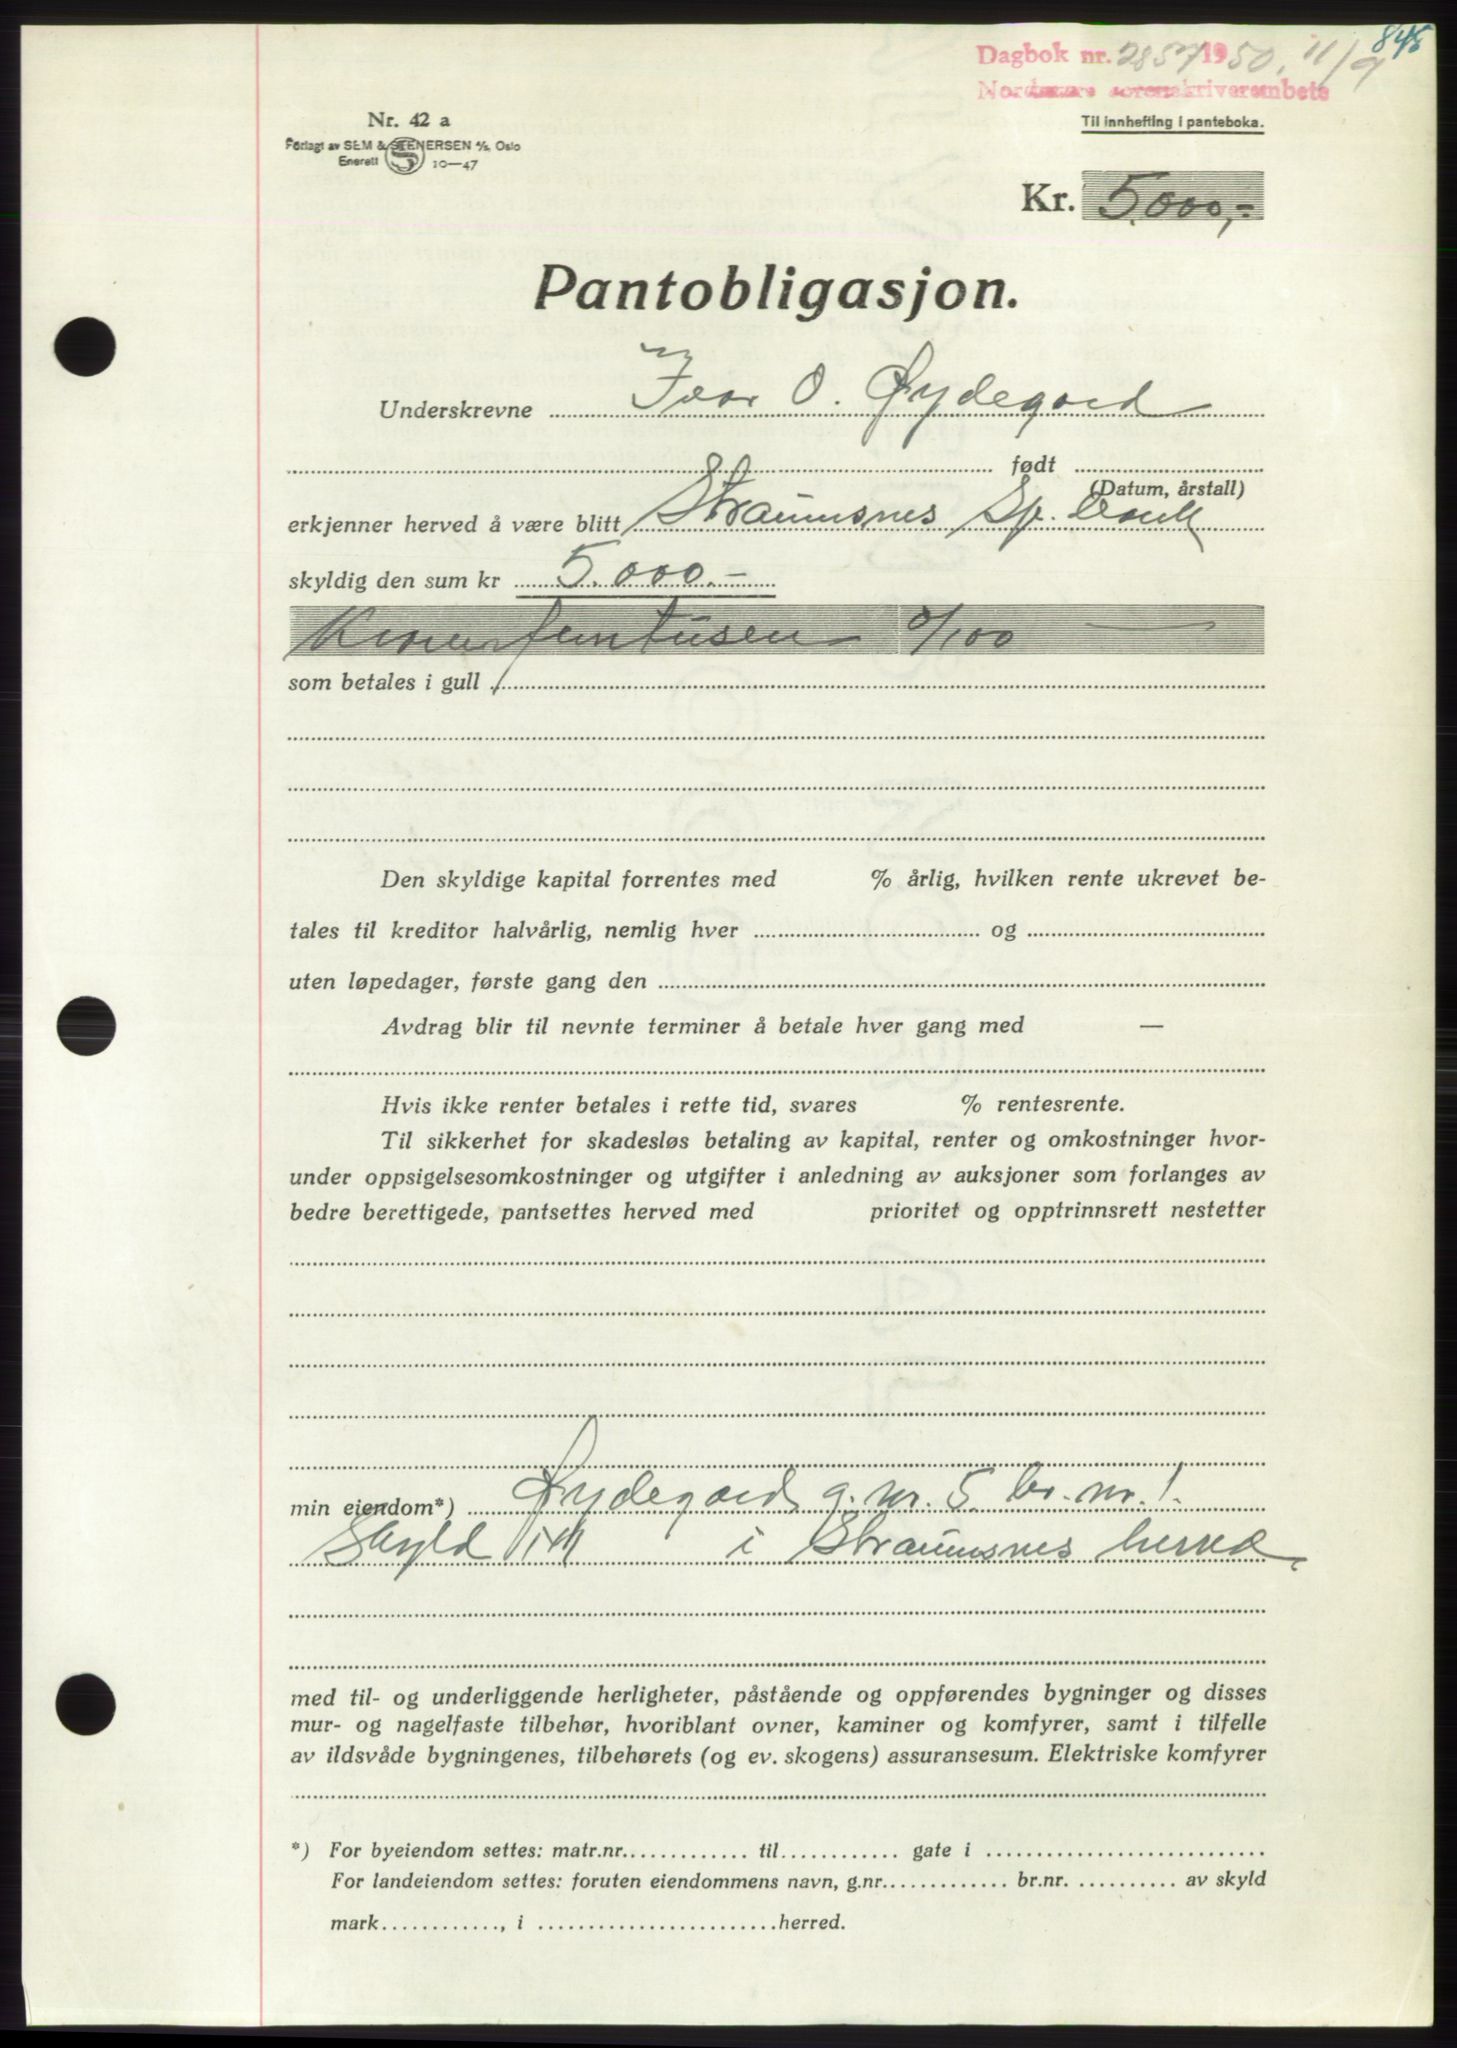 845
Dagbok nr. 2857 1950, 11/9
Nordmøre sorenskriverembete
Nr. 42 a
Til innhefting i panteboka.
Forlagt av SEM & STENERSEN A/S, Oslo
Enerett S 10—47
Kr. 5.000,-
Pantobligasjon.
Underskrevne Ivar O. Øydegard
født
(Datum, årstall)
erkjenner herved å være blitt Straumsnes Sp. bank
skyldig den sum kr 5.000.-
Kroner femtusen 0/100
som betales i gull
Den skyldige kapital forrentes med % årlig, hvilken rente ukrevet be-
tales til kreditor halvårlig, nemlig hver og
uten løpedager, første gang den
Avdrag blir til nevnte terminer å betale hver gang med —
Hvis ikke renter betales i rette tid, svares % rentesrente.
Til sikkerhet for skadesløs betaling av kapital, renter og omkostninger hvor-
under oppsigelsesomkostninger og utgifter i anledning av auksjoner som forlanges av
bedre berettigede, pantsettes herved med prioritet og opptrinnsrett nestetter
min eiendom*) Øydegard g. nr. 5 br. nr. 1.
Skyld i Straumsnes herred
med til- og underliggende herligheter, påstående og oppførendes bygninger og disses
mur- og nagelfaste tilbehør, hvoriblant ovner, kaminer og komfyrer, samt i tilfelle
av ildsvåde bygningenes, tilbehørets (og ev. skogens) assuransesum. Elektriske komfyrer
*) For byeiendom settes: matr.nr. til gate i
For landeiendom settes: foruten eiendommens navn, g.nr. br.nr. av skyld
mark , i herred.